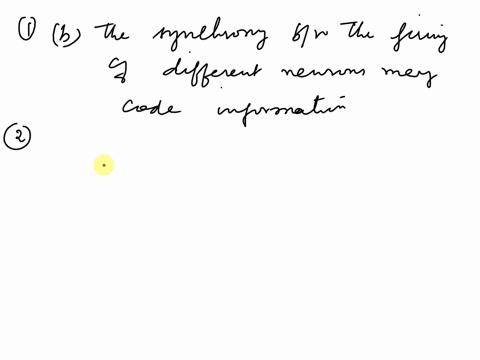 ① (b) The synchrony b/w the firing
of different neurons may
code information
②